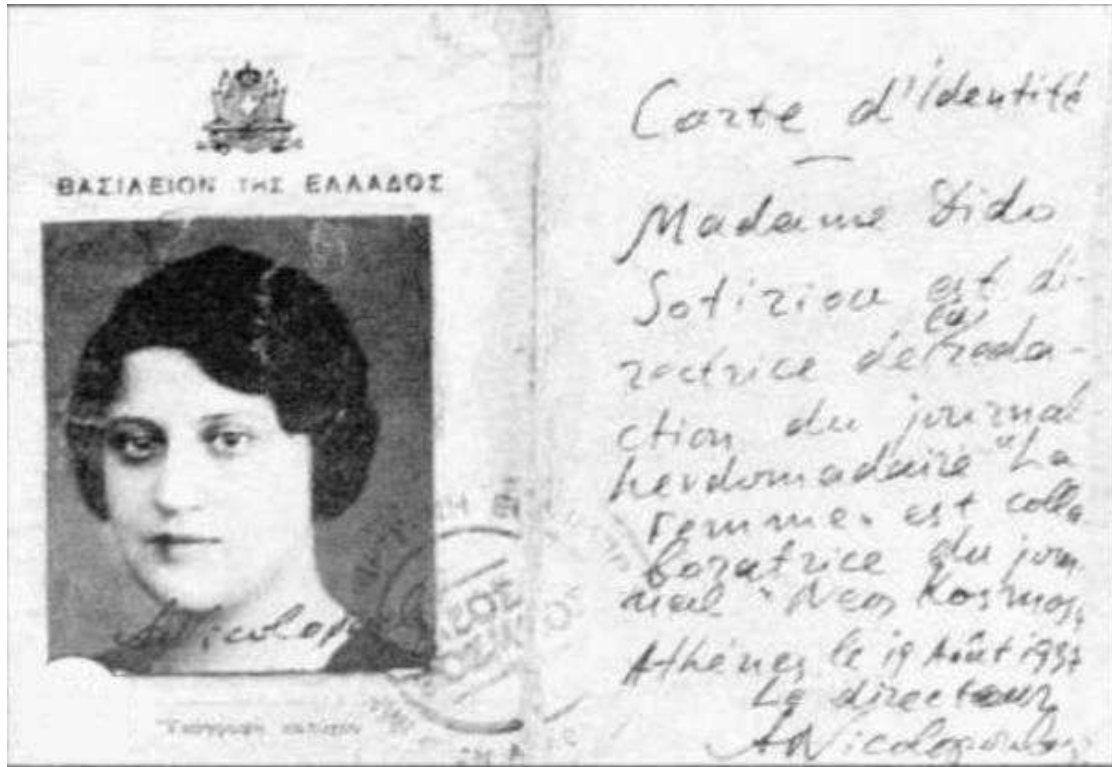 ΒΑΣΙΛΕΙΟΝ ΤΗΣ ΕΛΛΑΔΟΣ
A Nicolop
ΝΕΟΣ
ΚΟΣΜΟΣ
Carte d'Identité
Madame Dido
Sotiriou est di-
rectrice de la réda-
ction du journal
hevdomadaire "La
Femme" est colla
boratrice du jour
nal "Neos Kosmos"
Athénes le 19 Août 1937
Le directeur
A Nicolopoulos